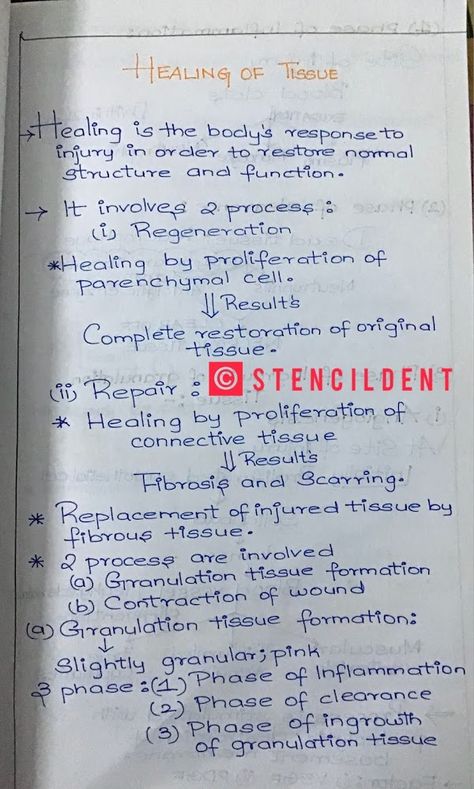 HEALING OF TISSUE
→ Healing is the body's response to
injury in order to restore normal
structure and function.
→ It involves 2 process :
(i) Regeneration
*Healing by proliferation of
parenchymal cell.
⇓ Results
Complete restoration of original
tissue.
© STENCILDENT
(ii) Repair :
* Healing by proliferation of
connective tissue
⇓ Results
Fibrosis and Scarring.
* Replacement of injured tissue by
fibrous tissue.
* 2 process are involved
(a) Granulation tissue formation
(b) Contraction of wound
(a) Granulation tissue formation:
↓
Slightly granular; pink
3 phase :(1) Phase of Inflammation
(2) Phase of clearance
(3) Phase of ingrowth
of granulation tissue